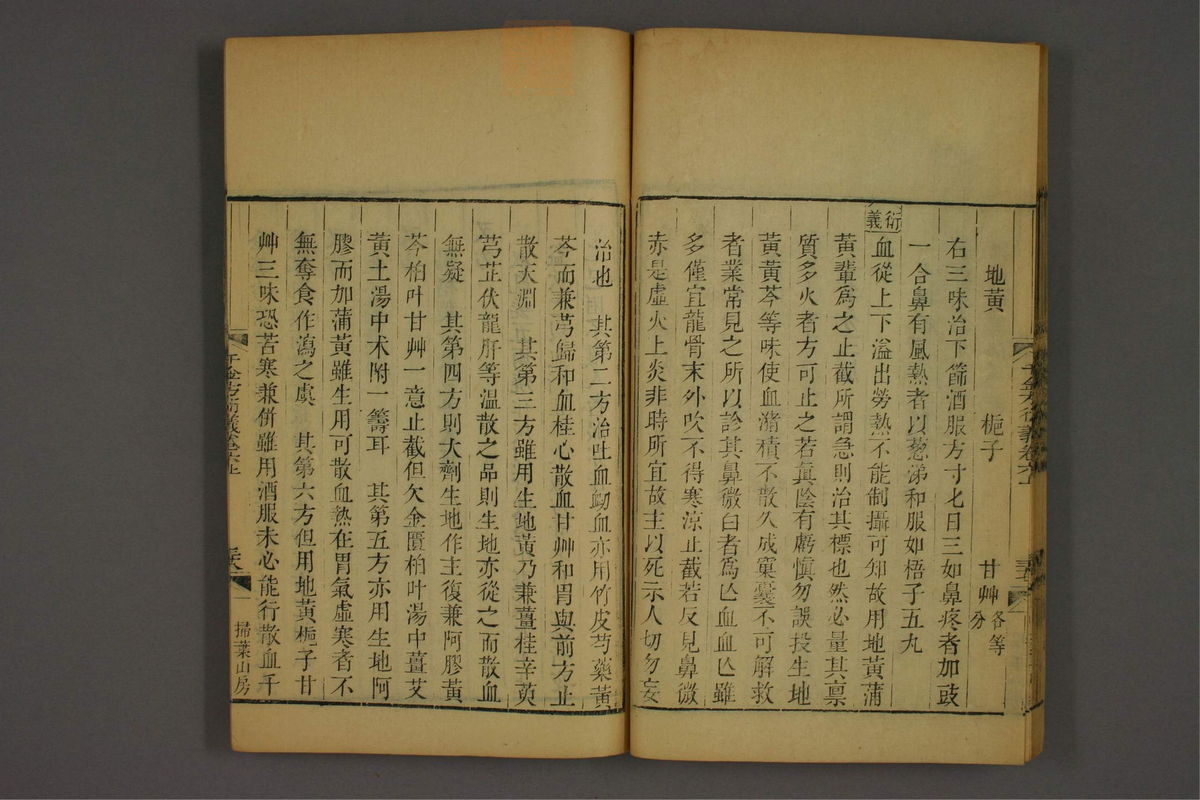 地黃 梔子 甘艸各等分
右三味治下篩酒服方寸七日三如鼻疼者加豉
一合鼻有風熱者以葱涕和服如梧子五丸
衍義 血從上下溢出勞熱不能制攝可知故用地黃蒲
黃輩爲之止截所謂急則治其標也然必量其禀
質多火者方可止之若眞陰有虧愼勿誤投生地
黃黃芩等味使血瀦積不散久成窠囊不可解救
者業常見之所以診其鼻微白者爲亾血血亾雖
多僅宜龍骨末外吹不得寒涼止截若反見鼻微
赤是虛火上炎非時所宜故主以死示人切勿妄
治也 其第二方治吐血衂血亦用竹皮芍藥黃
芩而兼芎歸和血桂心散血甘艸和胃與前方止
散大淵 其第三方雖用生地黃乃兼薑桂辛萸
芎芷伏龍肝等温散之品則生地亦從之而散血
無疑 其第四方則大劑生地作主復兼阿膠黃
芩柏叶甘艸一意止截但欠金匱柏叶湯中薑艾
黃土湯中术附一籌耳 其第五方亦用生地阿
膠而加蒲黃雖生用可散血熱在胃氣虛寒者不
無奪食作瀉之虞 其第六方但用地黃梔子甘
艸三味恐苦寒兼併雖用酒服未必能行散血千
千金方衍義卷六上
掃葉山房